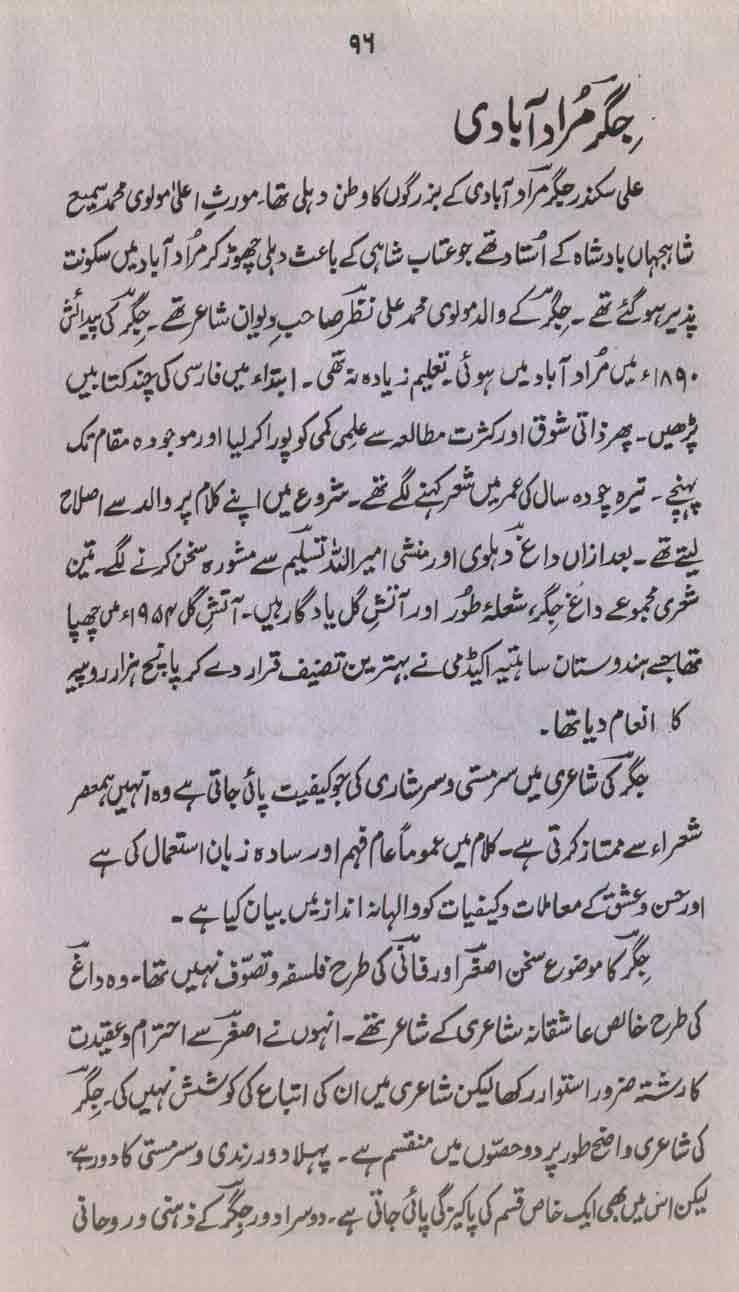 ۹۶
جِگر مُراد آبادی
علی سکندر جگر مراد آبادی کے بزرگوں کا وطن دہلی تھا۔ مورثِ اعلیٰ مولوی محمد سمیع
شاہجہاں بادشاہ کے اُستاد تھے جو عتاب شاہی کے باعث دہلی چھوڑ کر مُراد آباد میں سکونت
پذیر ہو گئے تھے۔ جگر کے والد مولوی محمد علی نظر صاحبِ دیوان شاعر تھے۔ جگر کی پیدائش
۱۸۹۰ء میں مُراد آباد میں ہوئی۔ تعلیم زیادہ نہ تھی۔ ابتداء میں فارسی کی چند کتابیں
پڑھیں۔ پھر ذاتی شوق اور کثرت مطالعہ سے علمی کمی کو پورا کر لیا اور موجودہ مقام تک
پہنچے۔ تیرہ چودہ سال کی عمر میں شعر کہنے لگے تھے۔ شروع میں اپنے کلام پر والد سے اصلاح
لیتے تھے۔ بعد ازاں داغ دہلوی اور منشی امیر اللہ تسلیم سے مشورہ سخن کرنے لگے۔ تین
شعری مجموعے داغِ جگر، شعلۂ طُور اور آتشِ گل یادگار ہیں۔ آتشِ گل ۱۹۵۴ء میں چھپا
تھا جسے ہندوستان ساہتیہ اکیڈمی نے بہترین تصنیف قرار دے کر پانچ ہزار روپیہ
کا انعام دیا تھا۔
جگر کی شاعری میں سرمستی و سرشاری کی جو کیفیت پائی جاتی ہے وہ انہیں ہمعصر
شعراء سے ممتاز کرتی ہے۔ کلام میں عموماً عام فہم اور سادہ زبان استعمال کی ہے
اور حسن و عشق کے معاملات و کیفیات کو والہانہ انداز میں بیان کیا ہے۔
جگر کا موضوع سخن اصغر اور فانی کی طرح فلسفہ و تصوّف نہیں تھا۔ وہ داغ
کی طرح خالص عاشقانہ شاعری کے شاعر تھے۔ انہوں نے اصغر سے احترام و عقیدت
کا رشتہ ضرور استوار رکھا لیکن شاعری میں ان کی اتباع کی کوشش نہیں کی۔ جگر
کی شاعری واضح طور پر دو حصّوں میں منقسم ہے۔ پہلا دور رندی و سرمستی کا دور ہے
لیکن اس میں بھی ایک خاص قسم کی پاکیزگی پائی جاتی ہے۔ دوسرا دور جگر کے ذہنی و روحانی